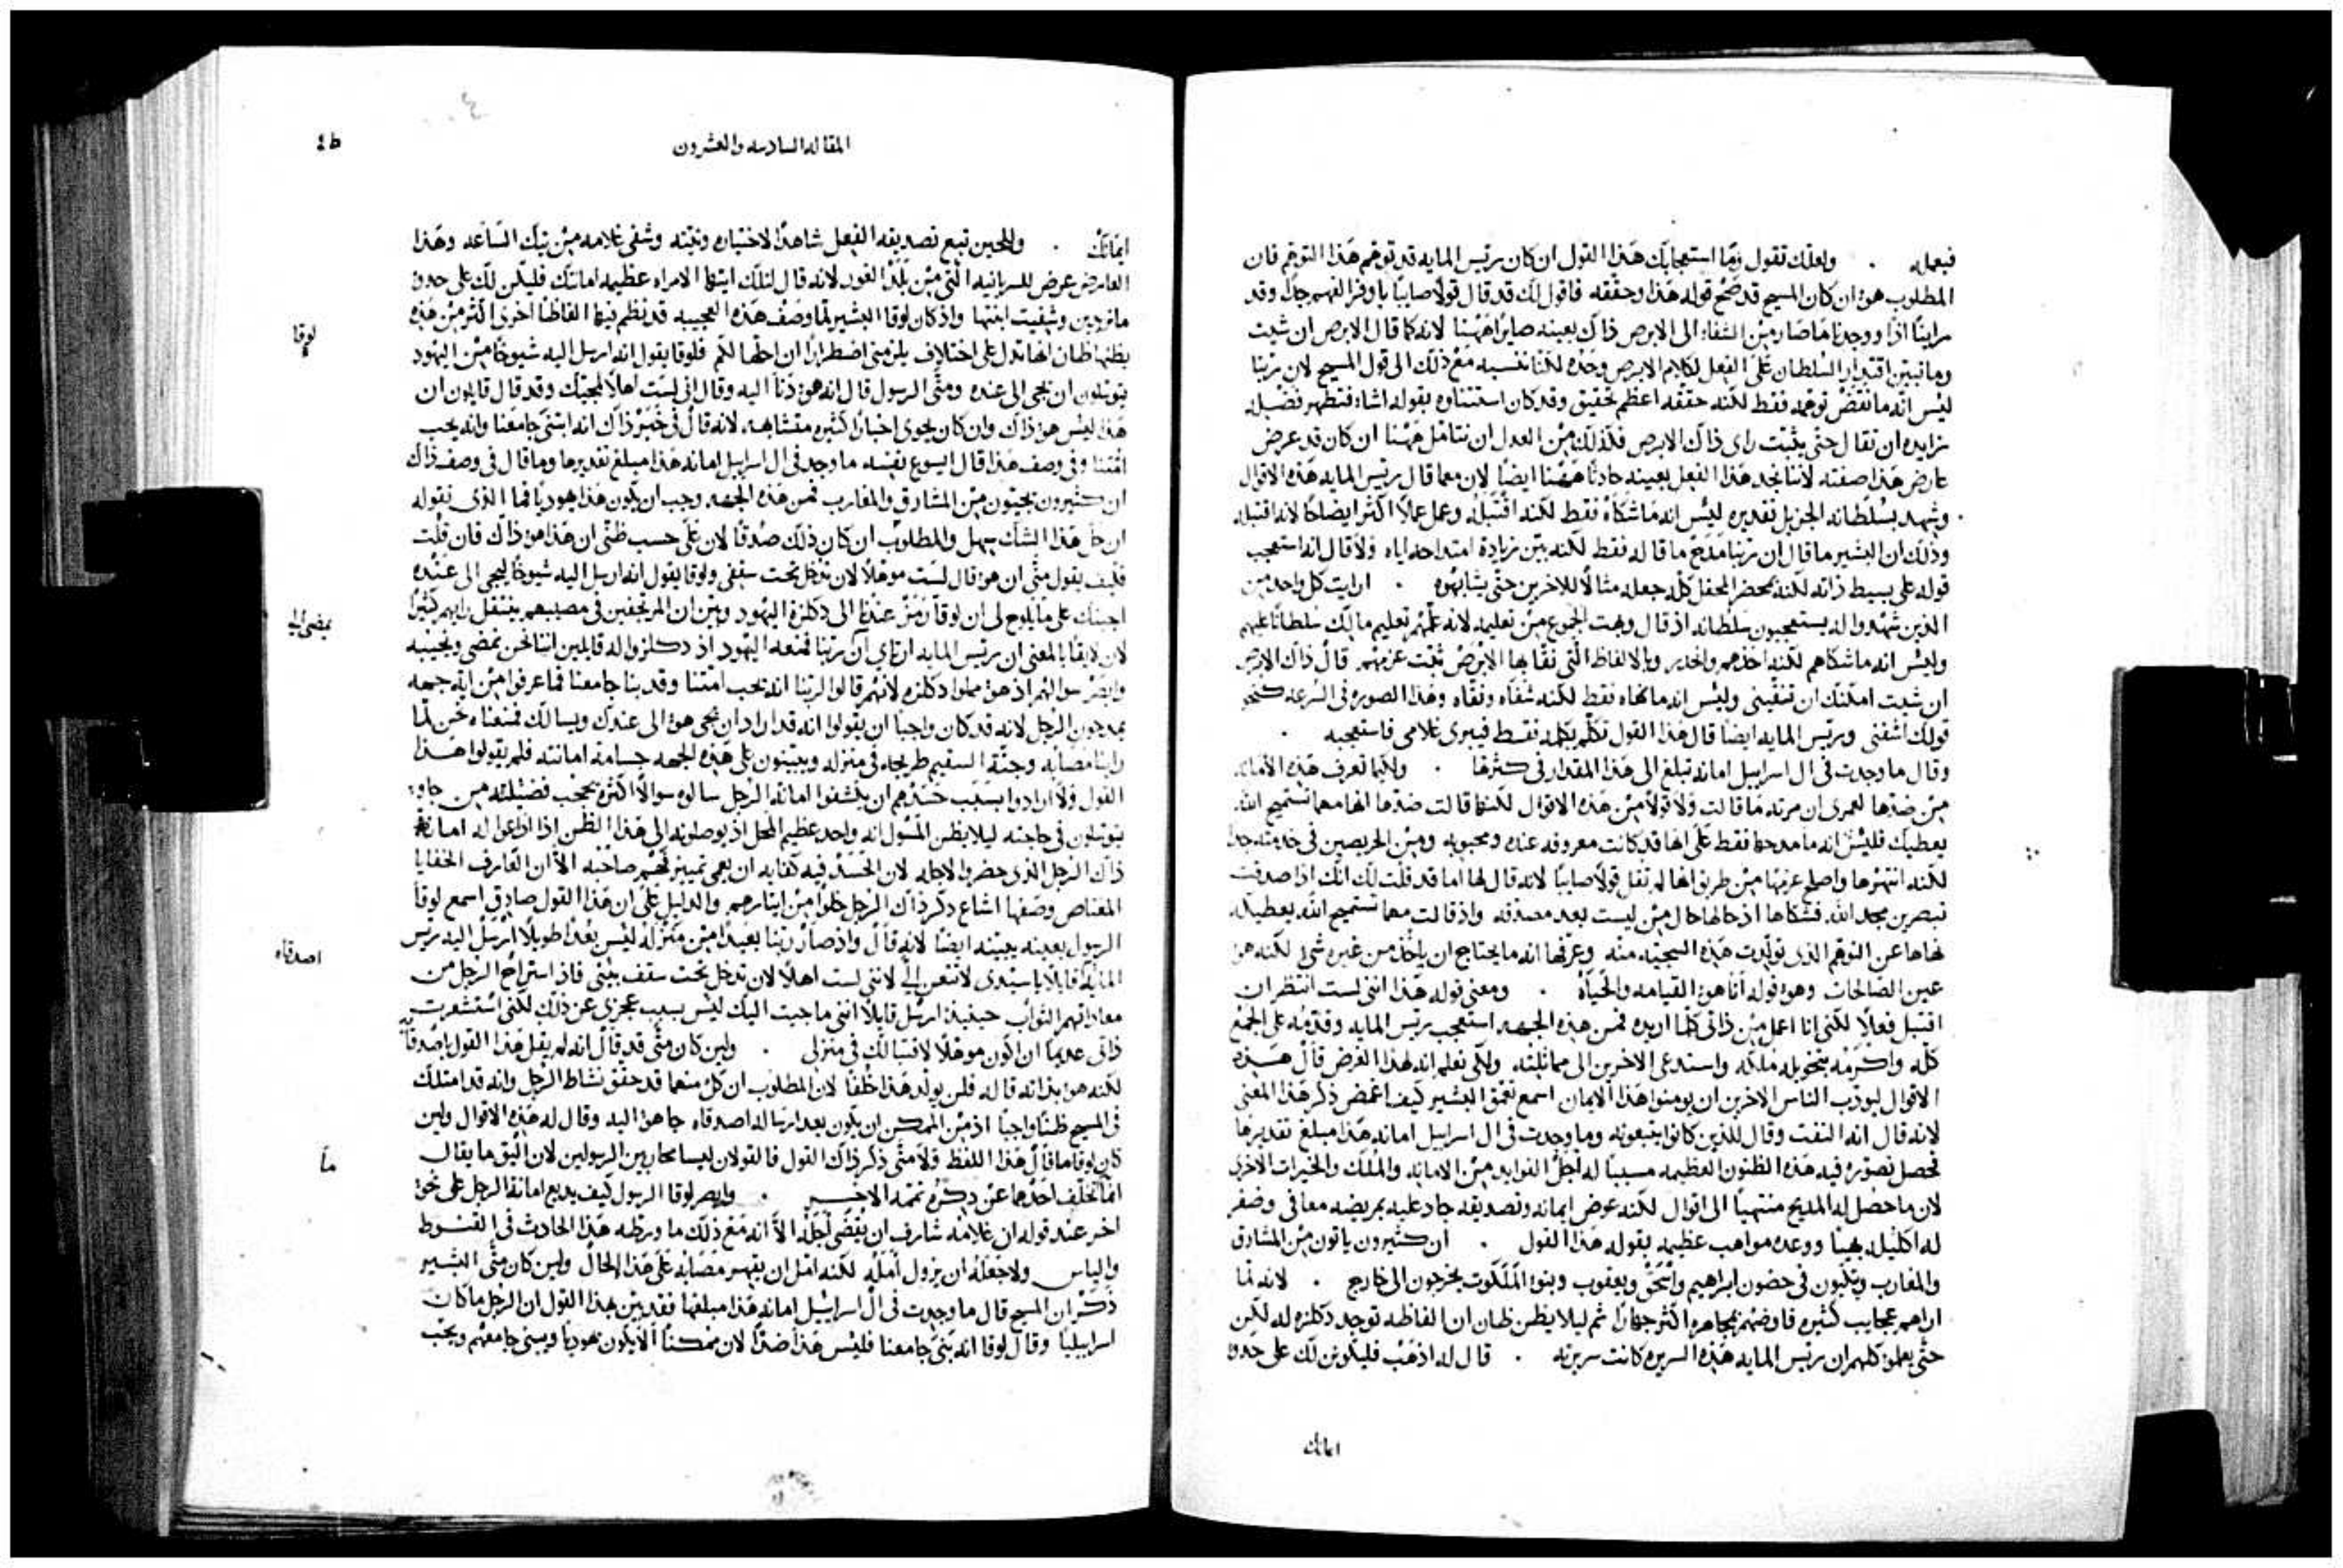 فيعمله . ولعلك تقول وما استعجابك هذا القول ان كان رئيس المايه قد توهم هذا التوهم فان
المطلوب هو ان كان المسيح قد صحح قوله هذا وحققه فاقول لك قد قال قولا صايبا باوفر الفهم جدا وقد
راينا اذا ووجدنا ما صار من الشفاء الى الابرص ذاك بعينه صايرا ههنا لانه كما قال الابرص ان شيت
وما تبين اقتدار السلطان على الفعل لكلام الابرص وحده لكننا ننسبه مع ذلك الى قول المسيح لان ربنا
ليس انه ما نقض توهمه فقط لكنه حققه اعظم تحقيق وقد كان استثناوه بقوله اشاء فتطهر فضيله
زايده ان تقال حتى يثبت راى ذاك الابرص فلذلك من العدل ان نتامل ههنا ان كان قد عرض
عارض هذا صفته لاننا نجد هذا الفعل بعينه حادثا ههنا ايضا لان معما قال رئيس المايه هذه الاقوال
وشهد بسلطانه الجزيل تقديره ليس انه ما شكاه فقط لكنه اقتبله وعمل عملا اكثر ايضاحا لانه اقتبله
وذلك ان البشير ما قال ان ربنا مدح ما قاله فقط لكنه بين زيادة امتداحه اياه ولا قال انه استعجب
قوله على بسيط ذاته لكنه بمحضر المحفل كله جعله مثالا للاخرين حتى يشابهوه . ارايت كل واحد من
الذين شهدوا له يستعجبون سلطانه اذ قال وبهت الجموع من تعليمه لانه علمهم تعليم مالك سلطانا عليهم
وليس انه ما شكاهم لكنه اخذهم وانحدر وبالالفاظ التي نقا بها الابرص ثبت عزمهم قال ذاك الابرص
ان شيت امكنك ان تنقيني وليس انه ما نهاه فقط لكنه شفاه ونقاه وهذا الصوره في السرعه كنحو
قولك اشفنى ورئيس المايه ايضا قال هذا القول تكلم بكلمه فقط فيبرى غلامى فاستعجبه .
وقال ما وجدت في ال اسراييل امانه تبلغ الى هذا المقدار في كثرتها . ولكيما تعرف هذه الامانه
من ضدها لعمرى ان مرته ما قالت ولا قولا من هذه الاقوال لكنها قالت ضدها انها مهما تستميح الله
يعطيك فليس انه ما مدحها فقط على انها قد كانت معروفه عنده ومحبوبه ومن الحريصين في خدمته جدا
لكنه انتهرها واصلح عزمها من طريق انها لم تقل قولا صايبا لانه قال لها اما قد قلت لك انك اذا صدقت
تبصرين مجد الله فشكاها اذ حالها حال من ليست بعد مصدقه واذ قالت مهما تستميح الله يعطيكه
نهاها عن التوهم الذى تولدت هذه السجيه منه وعرفها انه ما يحتاج ان ياخذ من غيره شيا لكنه هو
عين الصالحات وهو قوله انا هو القيامه والحياه . ومعنى قوله هذا اننى لست انتظر ان
اقتبل فعلا لكنى انا اعمل من ذاتى كلما اريده فمن هذه الجهه استعجب رئيس المايه وقدمه على الجمع
كله واكرمه بتخويله ملكه واستدعى الاخرين الى مماثلته ولكى تعلم انه لهذا الغرض قال هذه
الاقوال ليودب الناس الاخرين ان يومنوا هذا الايمان اسمع تعمق البشير كيف اغمض ذكر هذا المعنى
لانه قال انه التفت وقال للذين كانوا يتبعونه وما وجدت في ال اسراييل امانه هذا مبلغ تقديرها
فحصل تصوره فيه هذه الظنون العظيمه مسببا له اجل الفوايد من الامانه والملك والخيرات الاخرى
لان ما حصل له المديح منتهيا الى اقوال لكنه عوض ايمانه وتصديقه جاد عليه بمريضه معافى وضفر
له اكليله بهيا ووعده مواهب عظيمه بقوله هذا القول . ان كثيرون ياتون من المشارق
والمغارب ويتكيون في حضون ابراهيم واسحق ويعقوب وبنو الملكوت يخرجون الى خارج . لانه لما
اراهم عجايب كثيره فاوضهم بمجاهره اكثر جهارا ثم ليلا يظن ظان ان الفاظه توجد دكلزه له لكن
حتى يعلموا كلهم ان رئيس المايه هذه السريره كانت سريرته . قال له اذهب فليكونن لك على حدو
ايمانك
المقاله السادسه والعشرون
ايمانك . وللحين تبع تصديقه الفعل شاهدا لاختياره ونيته وشفى غلامه من تيك الساعه وهذا
العارض عرض للسريانيه التي من بلد الغور لانه قال لتلك ايتها الامراه عظيمه امانتك فليكن لك على حدو
ما تريدين وشفيت ابنتها واذ كان لوقا البشير لما وصف هذه العجيبه قد نظم فيها الفاظا اخرى اكثر من هذه
يظنها ظان انها تدل على اختلاف يلزمنى اضطرارا ان احلها لكم فلوقا يقول انه ارسل اليه شيوخا من اليهود
يتوسلون ان يجى الى عنده ومتى الرسول قال انه هو دنا اليه وقال انى لست اهلا لمجيك وقد قال قايلون ان
هذا ليس هو ذاك وان كان يحوى اخبارا كثيره متشابهه لانه قال في خبر ذاك انه ابتنى جامعنا وانه يحب
امتنا وفي وصف هذا قال ايسوع نفسه ما وجد في ال اسراييل امانه هذا مبلغ تقديرها وما قال في وصف ذاك
ان كثيرون يجيون من المشارق والمغارب فمن هذه الجهه وجب ان يكون هذا يهوديا فما الذى نقوله
ان حل هذا الشك سهل والمطلوب ان كان ذلك صدقا لان على حسب ظنى ان هذا هو ذاك فان قلت
فكيف يقول متى ان هو قال لست موهلا لان تدخل تحت سقفى ولوقا يقول انه ارسل اليه شيوخا ليجى الى عنده
اجبتك على ما يلوح لى ان لوقا رمز عندنا الى دكلزة اليهود وبين ان المرتجفين في مصيبهم ينتقل رايهم كثيرا
لان لايقا بالمعنى ان رئيس المايه ارتاى ان ربنا فمنعه اليهود اذ دكلزوا له قايلين اننا نحن نمضى ونجيبه
وابصر سوالهم اذ هو مملوا دكلزه لانهم قالوا لربنا انه يحب امتنا وقد بنا جامعنا فما عرفوا من ايه جهه
يمدحون الرجل لانه قد كان واجبا ان يقولوا انه قد اراد ان يجى هو الى عندك ويسالك فمنعناه نحن لما
راينا مصابه وجثة السقيم طريحه في منزله ويبينون على هذه الجهه جسامة امانته فلم يقولوا هذا
القول ولا ارادوا بسبب حسدهم ان يكشفوا امانة الرجل سالوه سوالا اكثره يحجب فضيلته
يتوسلون في حاجته ليلا يظن المسول انه واحد عظيم المحل اذ يوصلونه الى هذا الظن اذا اذاعوا له امانة
ذاك الرجل الذى حضروا لاجله لان الحسد فيه كفايه ان يعمى تمييز فهم صاحبه الا ان العارف الخفايا
المعتاص وصفها اشاع ذكر ذاك الرجل خلوا من ايثارهم والدليل على ان هذا القول صادق اسمع لوقا
الرسول بعينه يبينه ايضا لانه قال واذ صار ربنا بعيدا من منزله ليس بعدا طويلا ارسل اليه رئيس
المايه قايلا يا سيدى لا تتعن الي لانني لست اهلا لان تدخل تحت سقف بيتى فاذ استراح الرجل من
معاداتهم حينيذ ارسل قايلا اننى ما جيت اليك ليس بسبب عجزى عن ذلك لكنى استشعرت
ذاتى عديما ان اكون موهلا لاقتبالك في منزلى . ولين كان متى قد قال انه لم يقل هذا القول باصدقا
لكنه هو بذاته قاله فلن يولد هذا خلفا لان المطلوب ان كل منهما قد حقق نشاط الرجل وانه قد امتلك
في المسيح ظنا واجبا اذ من الممكن ان يكون بعد ارساله اصدقاه جا هو اليه وقال له هذه الاقوال ولين
كان لوقا ما قال هذا اللفظ ولا متى ذكر ذاك القول فالقولان ليسا محاربين الرسولين لان اليق ما يقال
انما تخلف احدهما عن ذكره تممه الاخر . وابصر لوقا الرسول كيف يذيع امانة الرجل على نحو
اخر عند قوله ان غلامه شارف ان يقضى اجله الا انه مع ذلك ما ورطه هذا الحادث في القنوط
والياس ولا جعله ان يزول امله لكنه امل ان يقهر مصابه على هذا الحال ولين كان متى البشير
ذكر ان المسيح قال ما وجدت في ال اسراييل امانه هذا مبلغها فقد بين بهذا القول ان الرجل ما كان
اسراييليا وقال لوقا انه بنى جامعنا فليس هذا ضدا لان ممكنا الا يكون يهوديا ويبنى جامعهم ويحب
لوقا
يمضى الى
اصدقاه
ما